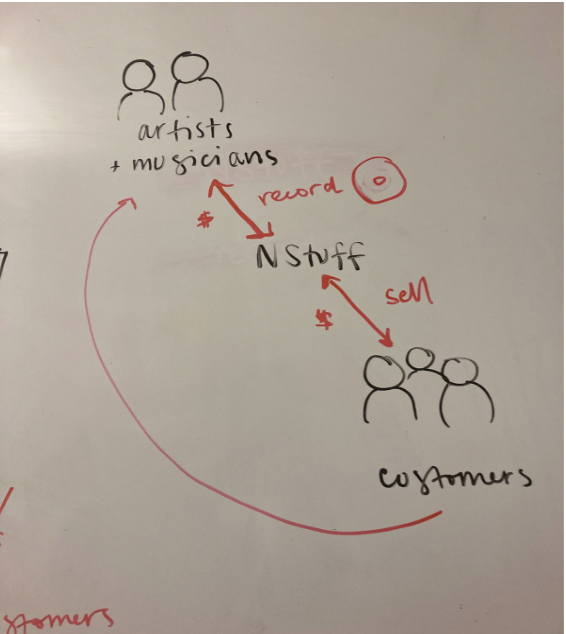 artists
+ musicians
record
$
N Stuff
sell
$
customers
stomers